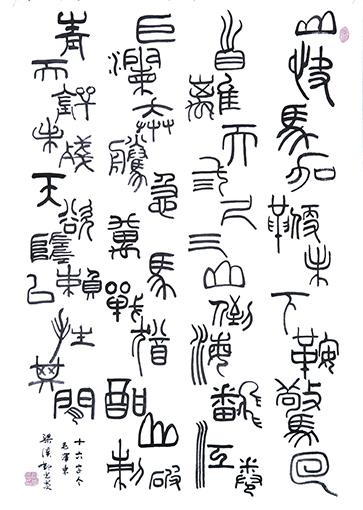 山快馬加鞭未下鞍驚回
首離天三尺三山倒海翻江卷
巨瀾奔騰急萬馬戰猶酣山刺破
青天鍔未殘天欲墮賴以拄其間
十六字令
毛澤東
梁溪